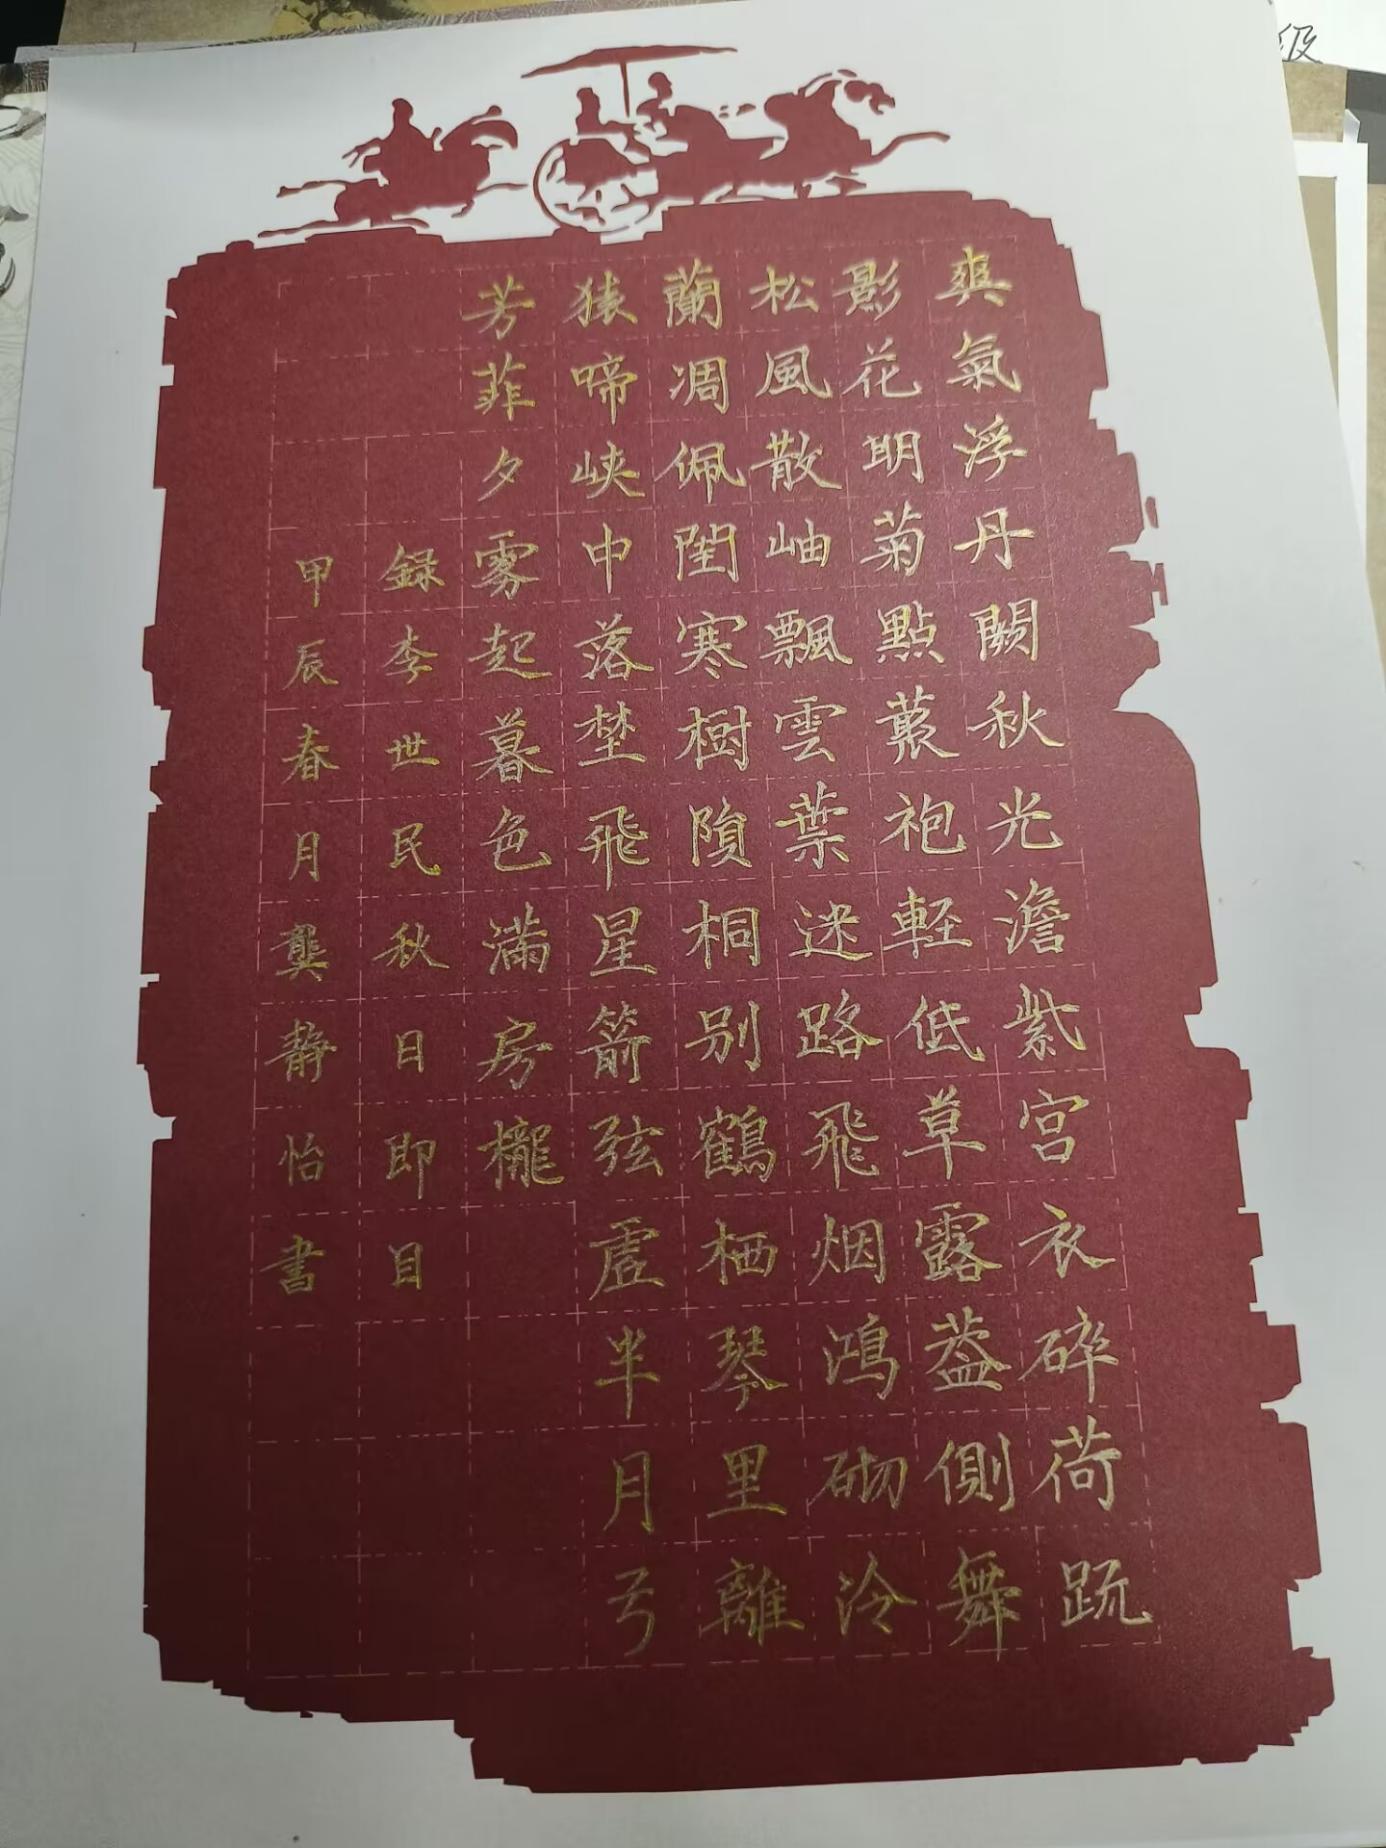 爽氣浮丹闕秋光澹紫宮衣碎荷疏
影花明菊點藂袍軽低草露葢側舞
松風散岫飄雲葉迷路飛烟鴻砌冷
蘭凋佩閨寒樹隕桐别鶴栖琴里離
猿啼峡中落埜飛星箭弦虛半月弓
芳菲夕雾起暮色滿房櫳
録李世民秋日即目
甲辰春月龔静怡書
级